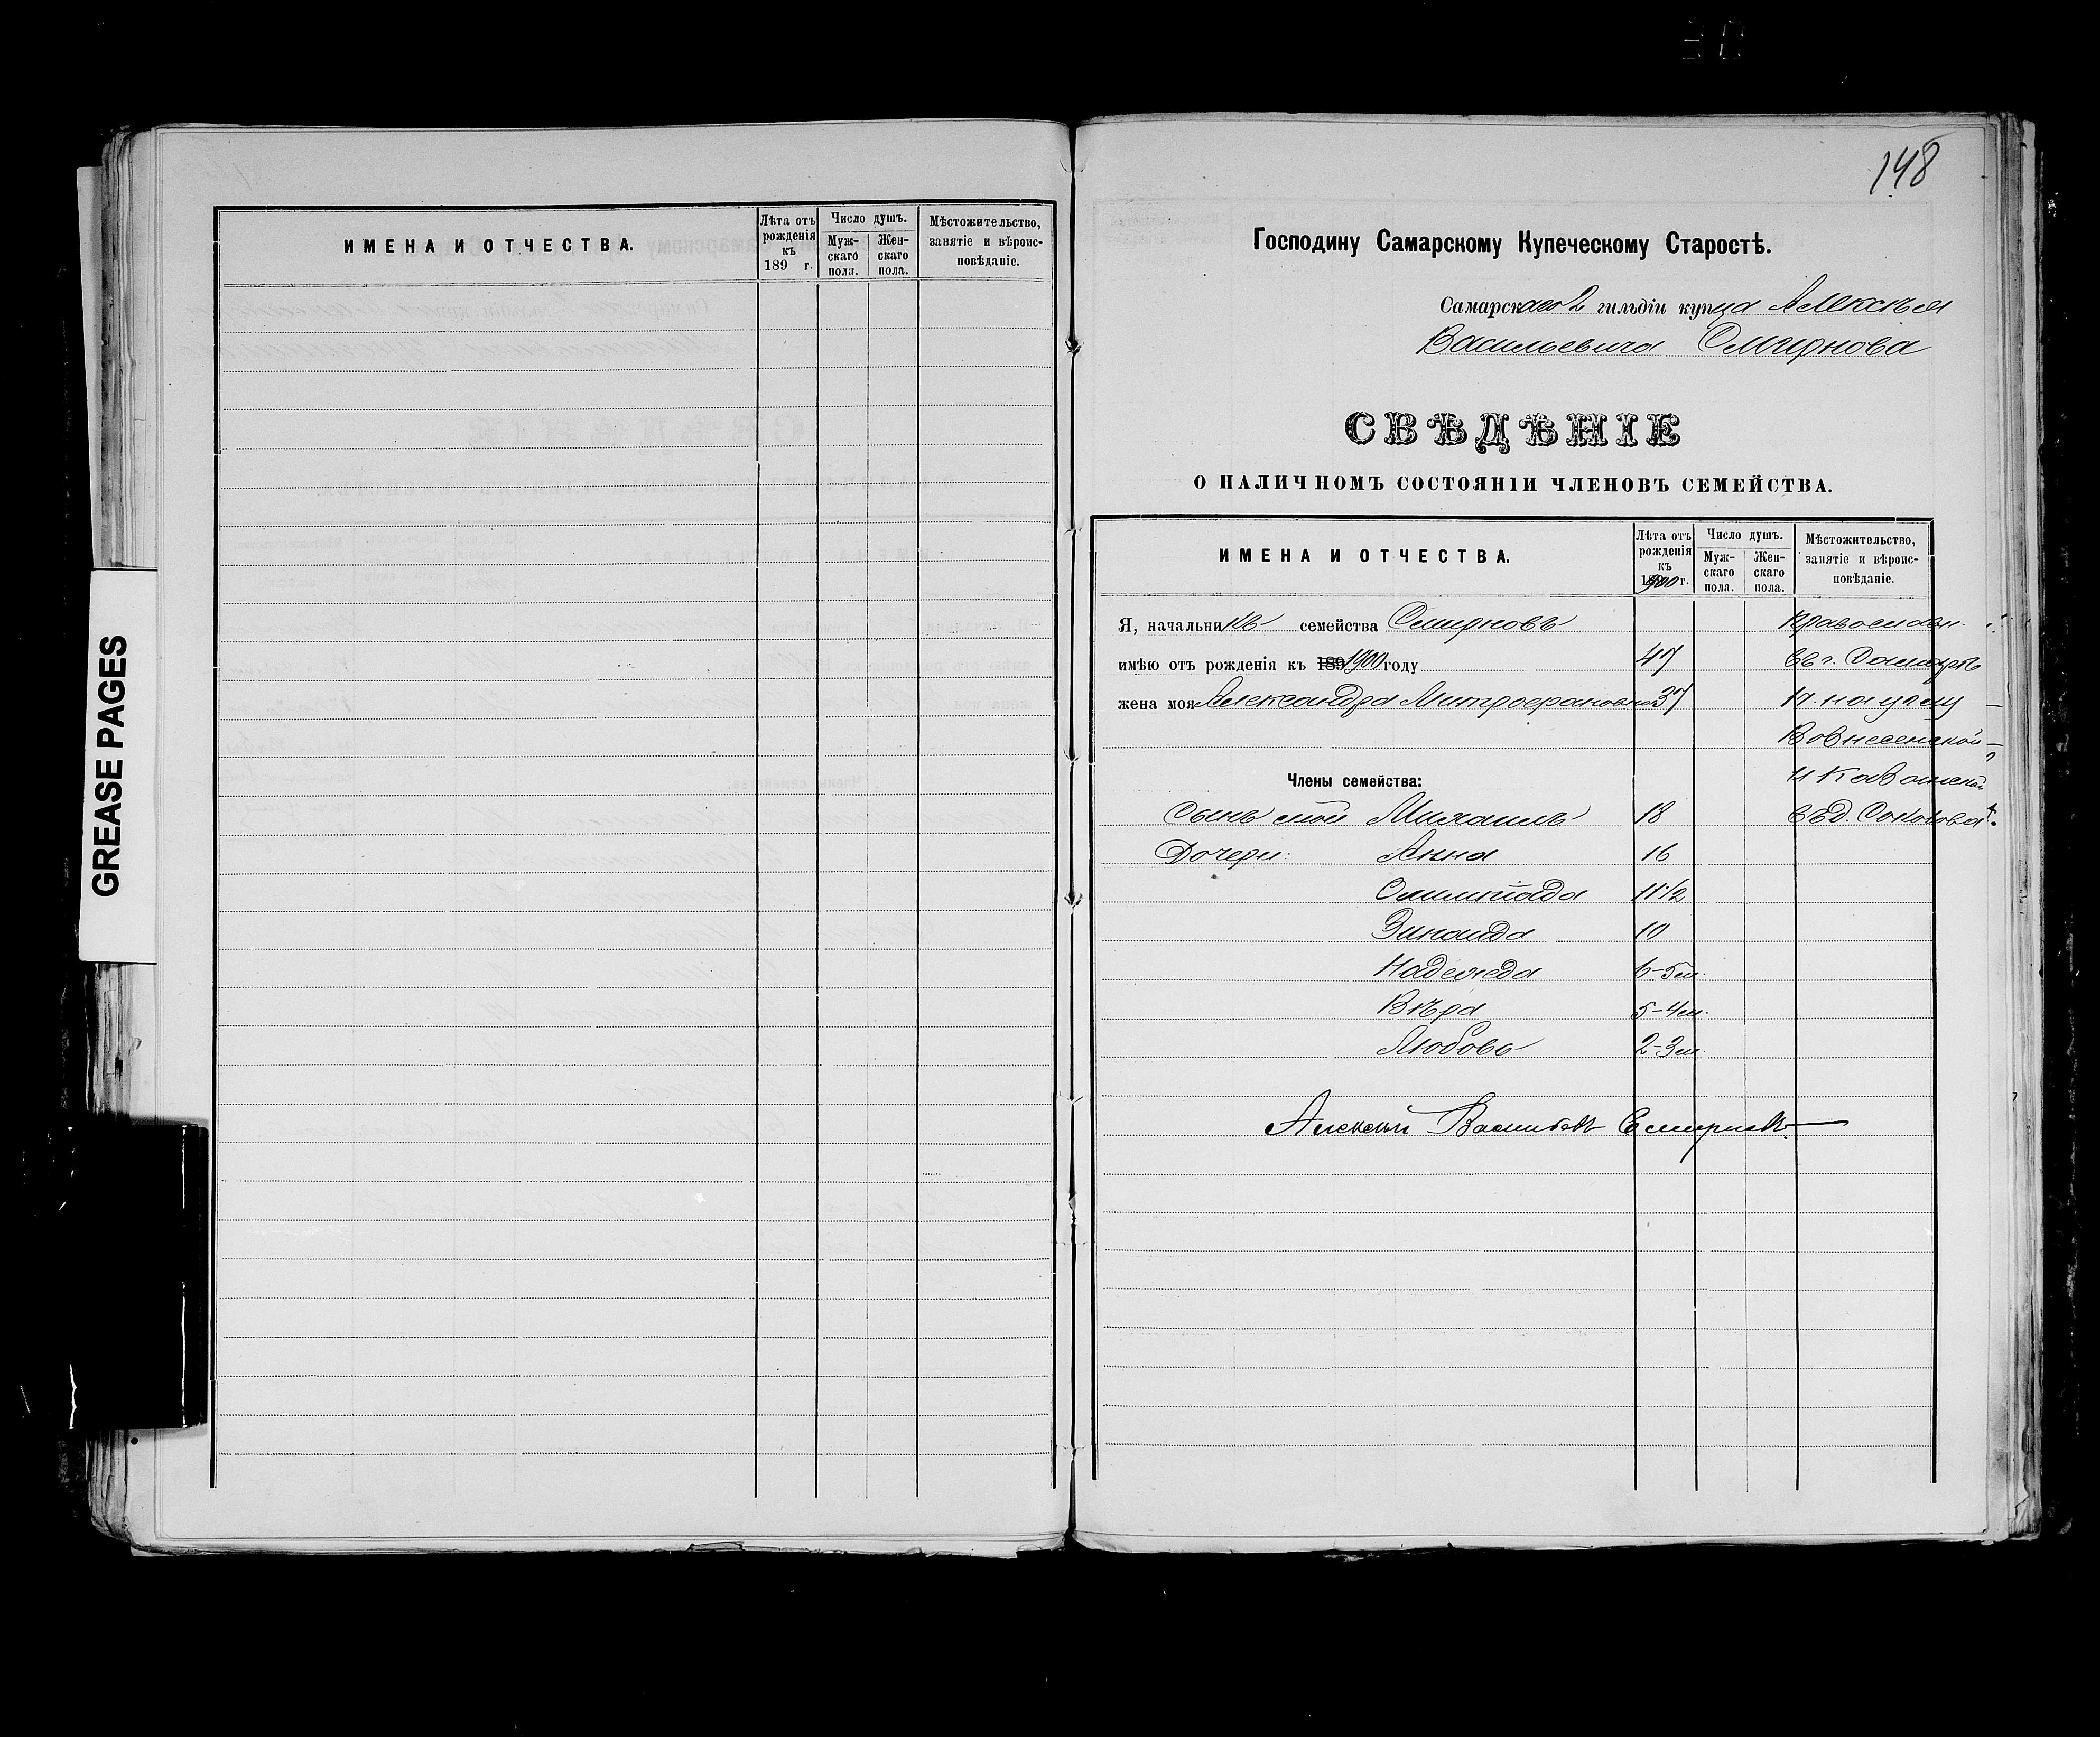 148
GREASE PAGES
ИМЕНА И ОТЧЕСТВА.
Лѣта отъ рожденія къ 189 г.
Число душъ.
Муж-скаго пола.
Жен-скаго пола.
Мѣстожительство, занятіе и вѣроис-повѣданіе.
Господину Самарскому Купеческому Старостѣ.
Самарскаго 2 гильдіи купца Алексѣя
Васильевича Смирнова
СВѢДѢНІЕ
О НАЛИЧНОМЪ СОСТОЯНІИ ЧЛЕНОВЪ СЕМЕЙСТВА.
ИМЕНА И ОТЧЕСТВА.
Лѣта отъ рожденія къ 1900 г.
Число душъ.
Муж-скаго пола.
Жен-скаго пола.
Мѣстожительство, занятіе и вѣроис-повѣданіе.
Я, начальникъ семейства Смирновъ Православн.
имѣю отъ рожденія къ 189 1900 году 47 въ г. Самарѣ
жена моя Александра Митрофановна 37 на углу
Вознесенской
Члены семейства: и Казанской
Сынъ мой Михаилъ 18 въ д. Соколова.
Дочери: Анна 16
Олимпіада 11 1/2
Зинаида 10
Надежда 6-5 м.
Вѣра 5-4 м.
Любовь 2-3 м.
Алексей Васильев Смирнов